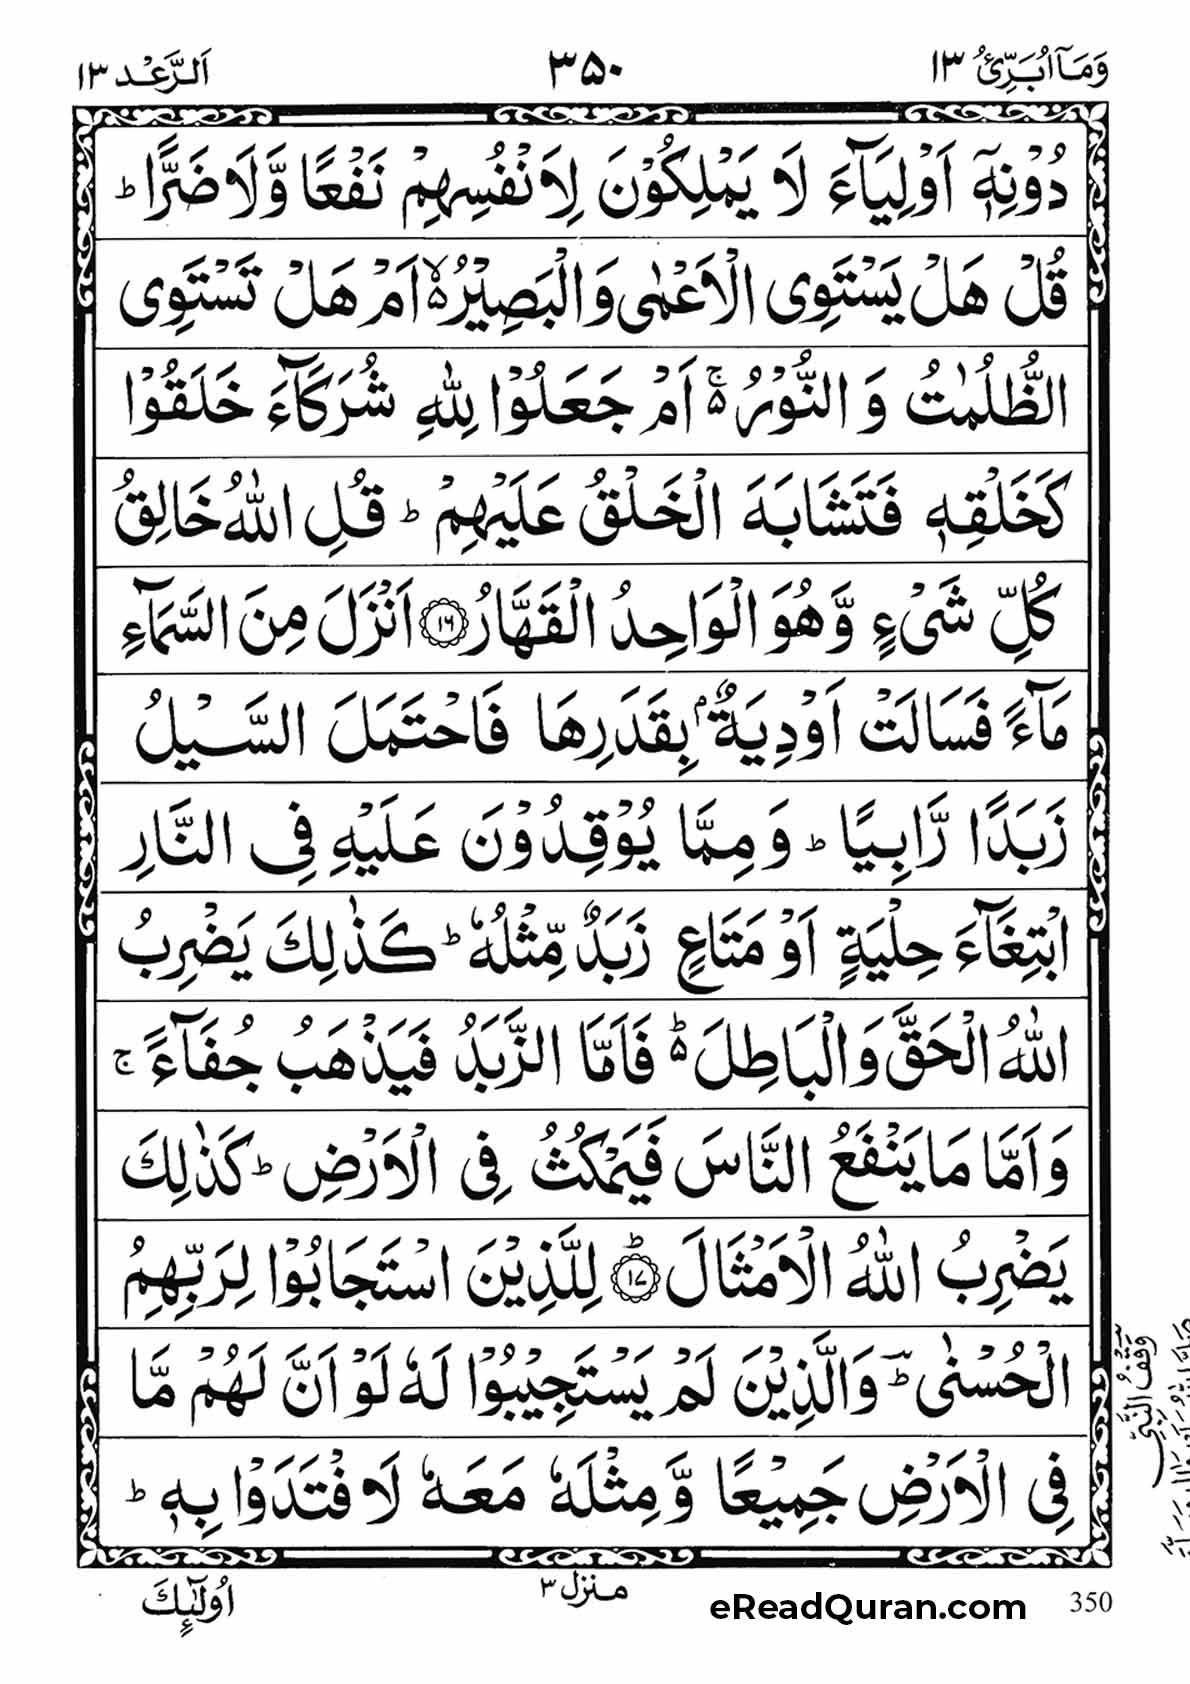 وَمَآ اُبَرِّئُ ١٣
٣٥٠
اَلرَّعْد ١٣
دُوْنِهٖۤ اَوْلِيَآءَ لَا يَمْلِكُوْنَ لِاَنْفُسِهِمْ نَفْعًا وَّلَا ضَرًّا ؕ
قُلْ هَلْ يَسْتَوِى الْاَعْمٰى وَالْبَصِيْرُ ۙ۬ اَمْ هَلْ تَسْتَوِى
الظُّلُمٰتُ وَ النُّوْرُ ۚ۬ اَمْ جَعَلُوْا لِلّٰهِ شُرَكَآءَ خَلَقُوْا
كَخَلْقِهٖ فَتَشَابَهَ الْخَلْقُ عَلَيْهِمْ ؕ قُلِ اللّٰهُ خَالِقُ
كُلِّ شَىْءٍ وَّهُوَ الْوَاحِدُ الْقَهَّارُ ﴿١٦﴾ اَنْزَلَ مِنَ السَّمَآءِ
مَآءً فَسَالَتْ اَوْدِيَةٌۢ بِقَدَرِهَا فَاحْتَمَلَ السَّيْلُ
زَبَدًا رَّابِيًا ؕ وَمِمَّا يُوْقِدُوْنَ عَلَيْهِ فِى النَّارِ
ابْتِغَآءَ حِلْيَةٍ اَوْ مَتَاعٍ زَبَدٌ مِّثْلُهٗ ؕ كَذٰلِكَ يَضْرِبُ
اللّٰهُ الْحَقَّ وَالْبَاطِلَ ؕ۬ فَاَمَّا الزَّبَدُ فَيَذْهَبُ جُفَآءً ۚ
وَاَمَّا مَا يَنْفَعُ النَّاسَ فَيَمْكُثُ فِى الْاَرْضِ ؕ كَذٰلِكَ
يَضْرِبُ اللّٰهُ الْاَمْثَالَ ﴿١٧﴾ؕ لِلَّذِيْنَ اسْتَجَابُوْا لِرَبِّهِمُ
الْحُسْنٰى ؔؕ وَالَّذِيْنَ لَمْ يَسْتَجِيْبُوْا لَهٗ لَوْ اَنَّ لَهُمْ مَّا
فِى الْاَرْضِ جَمِيْعًا وَّ مِثْلَهٗ مَعَهٗ لَافْتَدَوْا بِهٖ ؕ
وَقْفُ النَّبِيِّ
منزل ٣
اُولٰٓئِكَ
eReadQuran.com
350